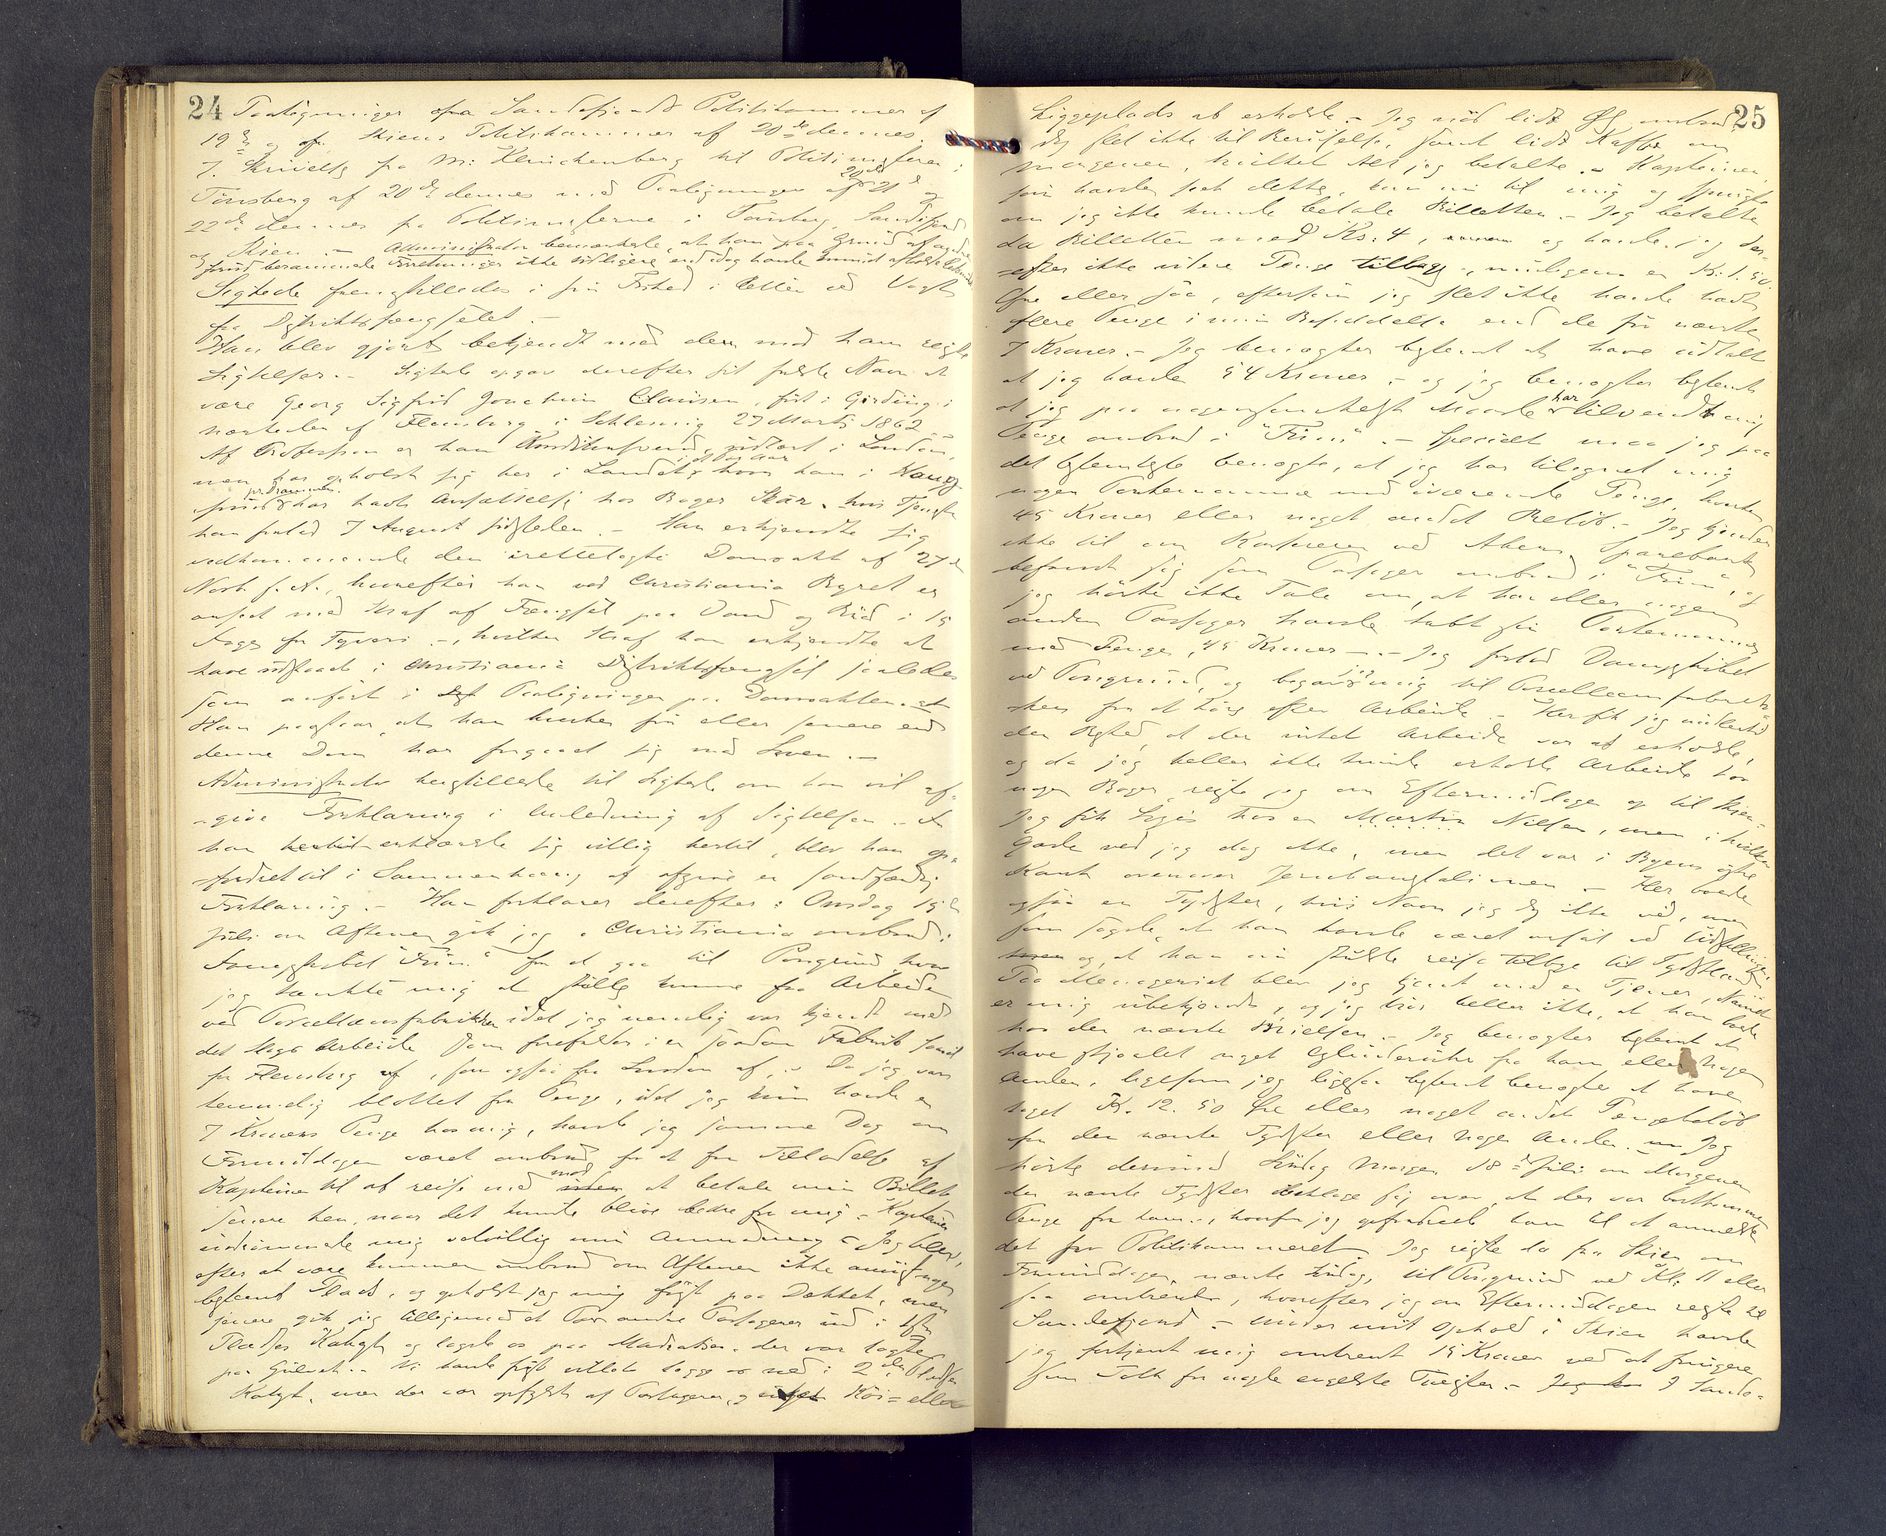 24
Paategninger fra Sandefjords Politikammer af
19de og fra Skiens Politikammer af 20de dennes,
7. Skrivelse fra til Politimesteren i
Tönsberg af 20de dennes med Paategninger af 20de 21de og
22de dennes fra Politimestrene i Tönsberg, Sandefjord
og Skien. – Administrator bemærkede, at han paa Grund af andre
forud berammede Forretninger ikke tidligere end idag havde kunnet afholde
Sigtede fremstilledes i fri Forhed i Retten ved Vagt
fra Distriktsfængselet. –
Han blev gjort bekjendt med den mod ham reiste
Sigtelse. – Sigtede opgav derefter sit fulde Navn at
være Georg Sigfrid Joachim Clausen, födt i
nærheden af Flensborg i Schleswig 27 Marts 1862. –
Af Profession er han Konditorsvend, udlært i London,
men har opholdt sig her i Landet i et Par Aar hvor han i
pr. Drammen har havt Ansættelse hos Bager hvis Tjeneste
han forlod 7 August sidstleden. – Han erkjendte sig
vedkommende den irettelagte Domsakt af 27de
Novb. f. A., hvorefter han ved Christiania Byret er
anseet med Straf af Fængsel paa Vand og Bröd i 15
Dage for Tyveri –, hvilken Straf han erkjendte at
have udstaaet i Christiania Distriktsfængsel saaledes
som anfört i Paategningen paa Domsakten. –
Han paastaar, at han hverken för eller senere end
denne Dom har forgaaet sig mod Loven. –
Administrator henstillede til Sigtede om han vil af-
-give Forklaring i Anledning af Sigtelsen. – Da
han erklærede sig villig hertil, blev han op-
fordret til i Sammenhæng at afgive en sandfærdig
Forklaring. – Han forklarer derefter: Onsdag
Juli om Aftenen gik jeg i Christiania ombord i
Dampskibet "Frin" for at gaa til Porsgrund, hvor
jeg tænkte mig at skulle kunne faa Arbeide
ved Porcellænsfabrikken idet jeg nemlig var kjendt med
det Slags Arbeide som forefalder i en saadan Fabrik saavel
fra Flensborg af, som ogsaa fra London af. – Da jeg var
temmelig blottet for Penge, idet jeg kun havde en
7 Kroners Penge hos mig, havde jeg samme Dag om
Formiddagen været ombord for at faa Tilladelse af
Kapteinen til at reise med mod at betale min Billet
senere hen, naar det kunde blive bedre for mig. – Kapteinen
indrömmede mig velvillig min Anmodning. – Jeg blev,
efter at være kommen ombord om Aftenen ikke anvist nogen
bestemt Plads, og opholdt jeg mig först paa Dækket, men
senere gik jeg tilligemed et Par andre Passagerer ind i
Pladses Kahyt og lagde os paa Madratser, der var lagte
paa Gulvet. – Vi havde först villet lægge os ned i 2den Pladses
Kahyt, men der var opfyldt af Passagerer, og Köi- eller
25
Liggeplads at erholde. – Jeg nöd lidt Öl ombord,
dog slet ikke til Beruselse, samt lidt Kaffe om
Morgenen, hvilket Alt jeg betalte. – Kapteinen,
som havde seet dette, kom nu til mig og spurgte
om jeg ikke kunde betale Billetten. – Jeg betalte
da Billetten med Kr. 4, og havde jeg der-
-efter ikke videre Penge tilbage, muligens en Kr. 1.50
Öre eller saa, eftersom jeg slet ikke havde havt
flere Penge i min Besiddelse end de för nævnte
7 Kroner. – Jeg benegter bestemt at have udtalt
at jeg havde 54 Kroner, – og jeg benegter bestemt
at jeg paa nogensomhelst Maade har tilvendt mig
Penge ombord i "Frin". – Specielt maa jeg paa
det bestemteste benegte, at jeg har tilegnet mig
nogen Portemonnæ med iværende Penge, hverken
45 Kroner eller noget andet Belöb. – Jeg kjender
ikke til om Kassereren ved Akers Sparebank
befandt sig som Passager ombord i "Frin", og
jeg hörte ikke Tale om, at han eller nogen
anden Passager havde tabt sin Portemonnæ
med Penge, 45 Kroner. – Jeg forlod Dampskibet
ved Porsgrund, og begav jeg mig til Porcellænsfabrik-
ken for at söge efter Arbeide. – Her fik jeg imidlertid
den Besked, at der intet Arbeide var at erholde,
og da jeg heller ikke kunde erholde Arbeide hos
nogen Bager, reiste jeg om Eftermiddagen op til Skien. –
Jeg fik Logis hos en Martin Nilsen, men i hvilken
Gade ved jeg dog ikke, men det var i Byens övre
Kant ovenover Jernbanestationen. – Her boede
ogsaa en Tydsker, hvis Navn jeg dog ikke ved, men
som sagde, at han havde været ansat ved Udstillingen
og at han nu skulde reise tilbage til Tydskland.
Paa Menageriet blev jeg kjendt med en Tjener, Navnet
er mig ubekjendt, og jeg tror heller ikke, at han boede
hos den nævnte Nielsen. – Jeg benegter bestemt at
have stjaalet noget Cylinderuhr fra ham eller nogen
Anden, ligesom jeg ligesaa bestemt benegter at have
taget Kr. 12. 50 Öre eller noget andet Pengebelöb
fra den nævnte Tydsker eller nogen Anden. – Jeg
hörte derimod Söndag Morgen 18de Juli om Morgenen
den nævnte Tydsker beklage sig over, at der var bortkommet
Penge fra ham, hvorfor jeg opfordrede ham til at anmelde
det for Politikammeret. Jeg reiste da fra Skien om
Formiddagen nævnte Söndag, til Porsgrund ved Kl. 11 eller
saa omtrent, hvorefter jeg om Eftermiddagen reiste til
Sandefjord. – Under mit Ophold i Skien havde
jeg fortjent mig omtrent 15 Kroner ved at fungere
som Tolk for nogle engelske Turister. – I Sande-